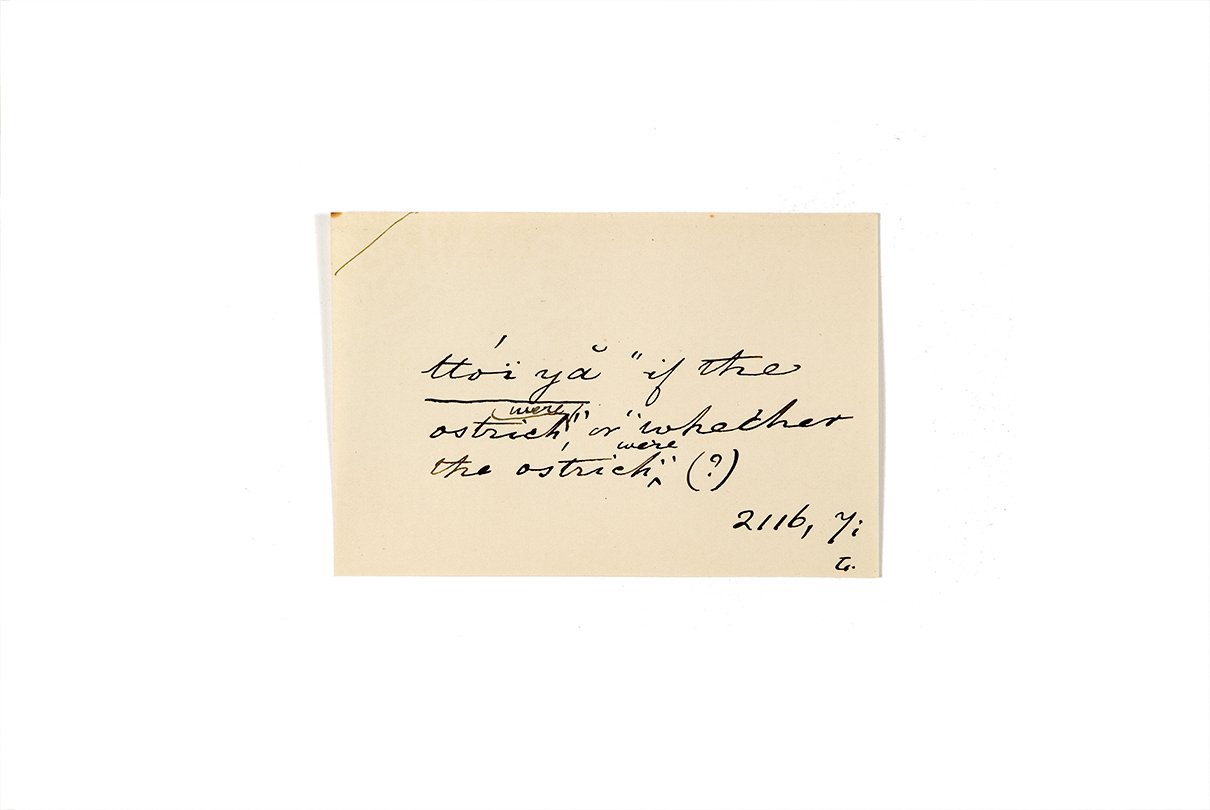 ttóï yă "if the
were
ostrich", or "whether
were
the ostrich" (?)
2116,